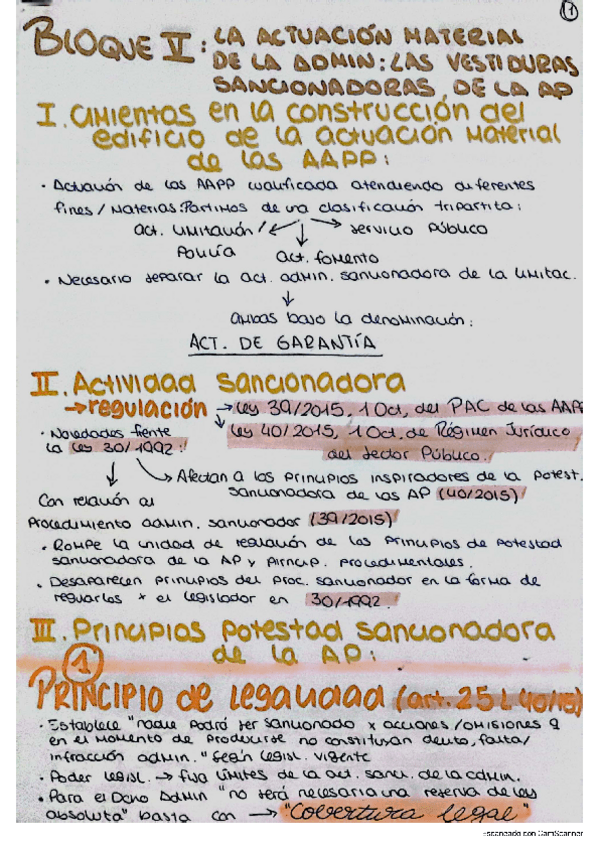 1
BLOQUE II: LA ACTUACIÓN MATERIAL
DE LA ADMIN: LAS VESTIDURAS
SANCIONADORAS DE LA AP
I. Cimientos en la construcción del
edificio de la actuación material
de las AAPP:
· Actuación de las AAPP cualificada atendiendo diferentes
fines/materias. Partimos de una clasificación tripartita:
act. limitación/
Policía
act. fomento
servicio Público
· Necesario separar la act. admin. sancionadora de la limitac.
ambas bajo la denominación:
ACT. DE GARANTÍA
II. Actividad sancionadora
→ regulación → Ley 39/2015, 1 Oct, del PAC de las AAPP
Ley 40/2015, 1 Oct. de Régimen Jurídico
del Sector Público.
· Novedades frente
la Ley 30/1992:
→ Afectan a los Principios inspiradores de la Potest.
sancionadora de las AP (40/2015)
Con relación al
Procedimiento admin. sancionador (39/2015)
· Rompe la unidad de regulación de los Principios de Potestad
sancionadora de la AP y Princip. Procedimentales.
· Desaparecen Principios del Proc. sancionador en la forma de
regularlos x el legislador en 30/1992.
III. Principios Potestad Sancionadora
de la AP:
1
PRINCIPIO de Legalidad (art. 25 L 40/15)
· Establece "nadie podrá ser sancionado x acciones/omisiones q
en el momento de Producirse no constituyan delito, falta/
infracción admin." según legisl. vigente
· Poder legisl. → fija límites de la act. sanc. de la admin.
· Para el Dcho Admin "no será necesaria una reserva de ley
absoluta" basta con → "Cobertura legal"
Escaneado con CamScanner